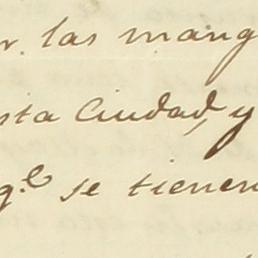 r las mang
sta Ciudad, y
q.e se tienen